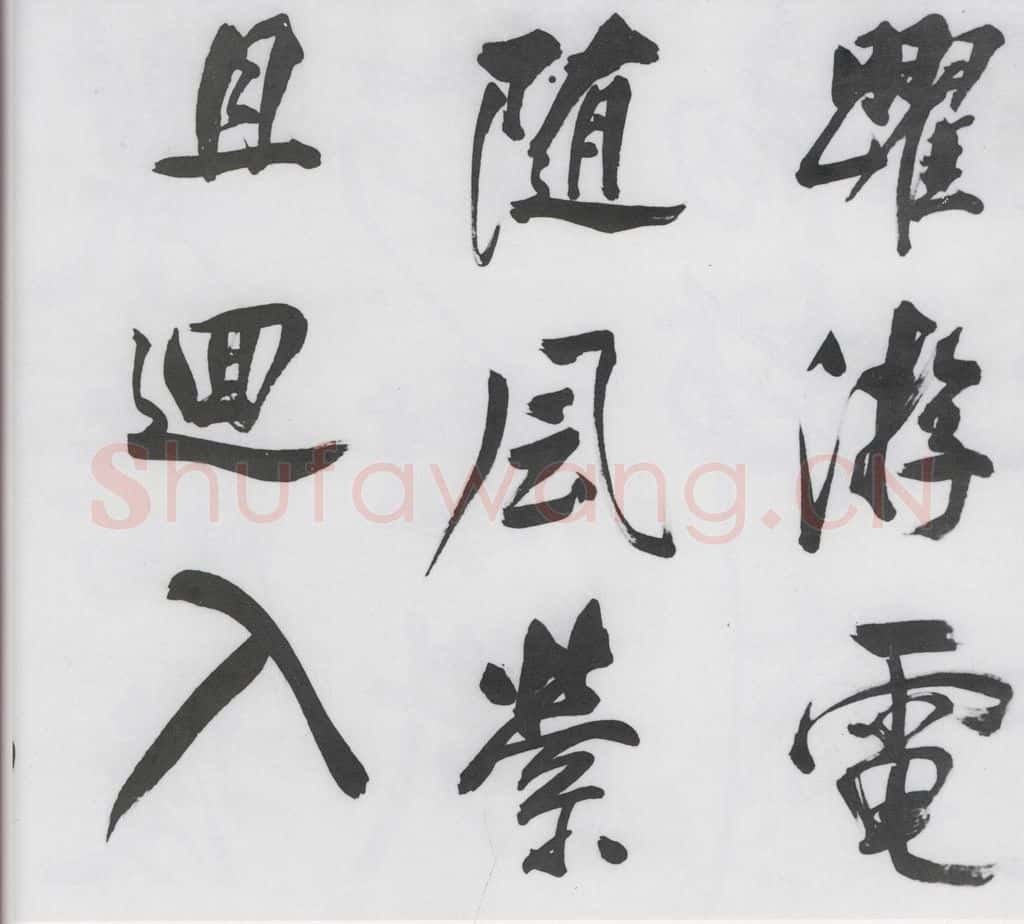 曜游電
随風縈
且迴入
Shufawang.CN